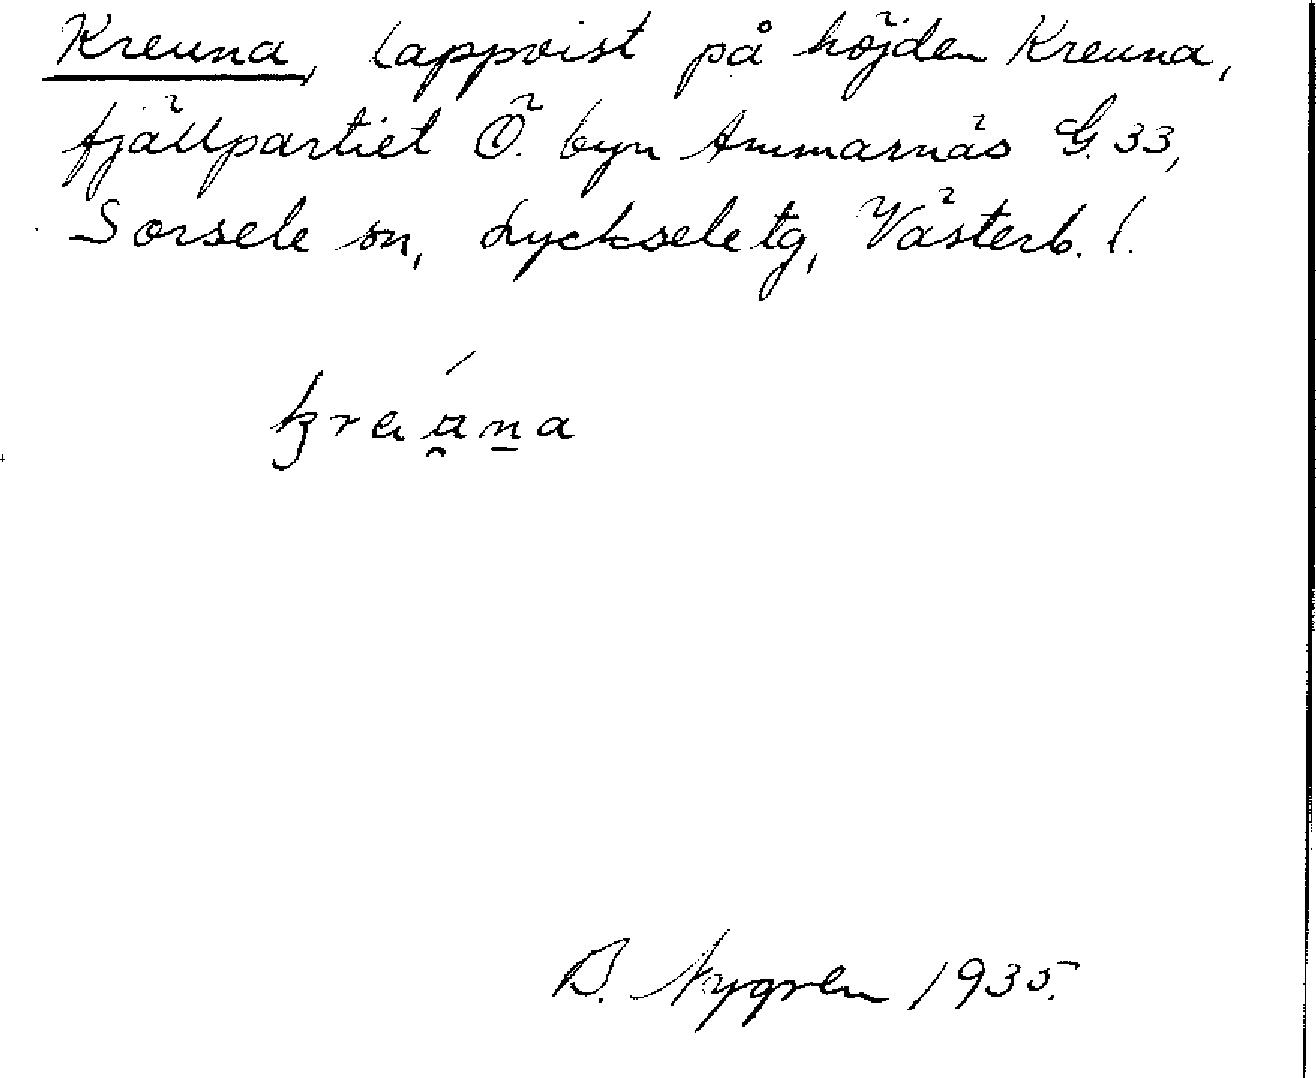 Kreuna, lappvist på höjden Kreuna,
fjällpartiet Ö. byn Ammarnäs G. 33,
Sorsele sn, Lycksele tg, Västerb. l.
B. Nygren 1935.